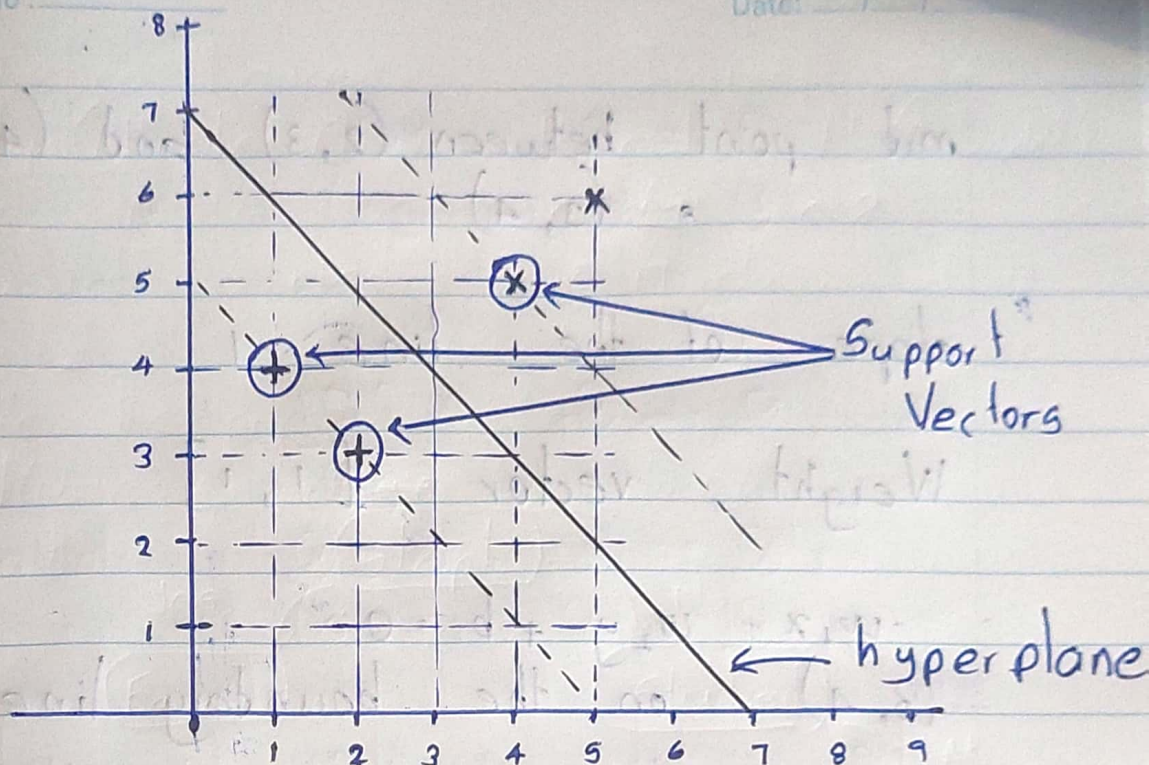 Date:
8
7
6
5
4
3
2
1
1 2 3 4 5 6 7 8 9
Support
Vectors
hyperplane